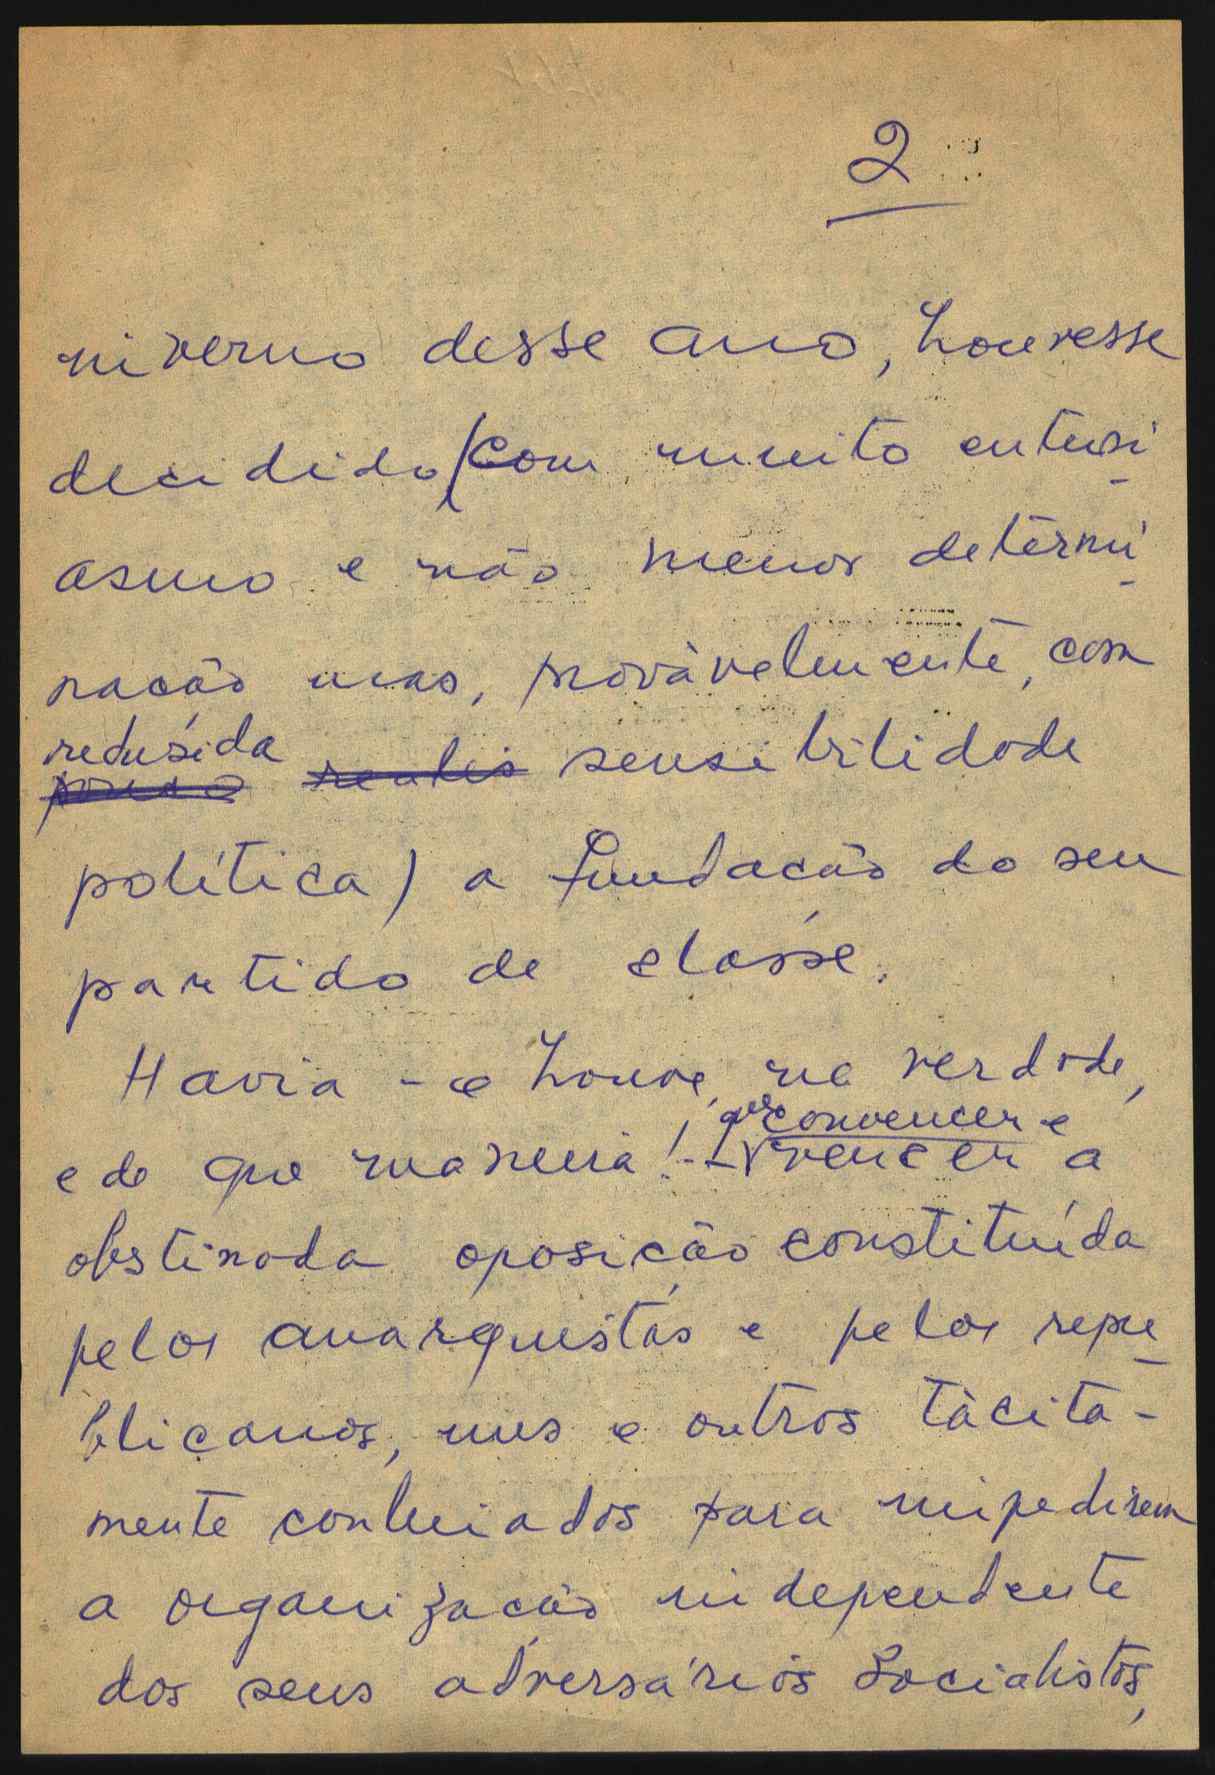 2
inverno desse ano, houvesse
decidido (com muito entusi-
asmo e não menor determi-
nação mas, provàvelmente, com
redusida
pouco realis sensibilidade
política) a fundação do seu
partido de classe.
Havia - e houve, na verdade,
que convencer e
e de que maneira! - vencer a
obstinada oposição constituída
pelos anarquistas e pelos repu-
blicanos, uns e outros tàcita-
mente conluiados para impedirem
a organização independente
dos seus adversários Socialistas,